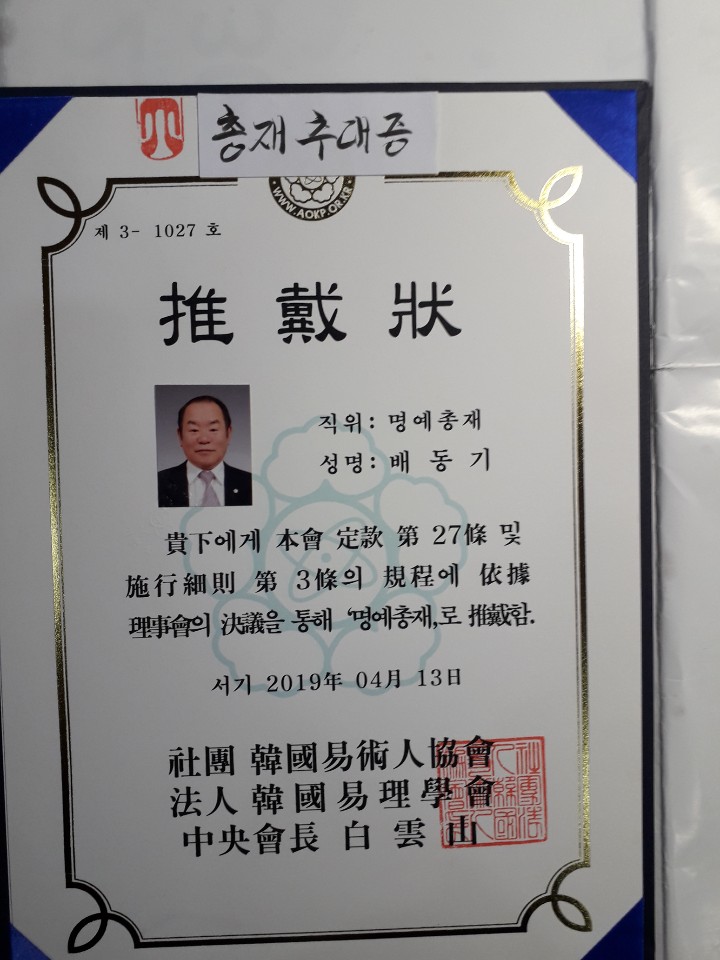 총재 추대증
WWW.AOKP.OR.KR
제 3- 1027 호
推戴狀
직위: 명예총재
성명: 배 동 기
貴下에게 本會 定款 第 27條 및
施行細則 第 3條의 規程에 依據
理事會의 決議을 통해 ‘명예총재,로 推戴함.
서기 2019年 04月 13日
社團 韓國易術人協會
法人 韓國易理學會
中央會長 白雲山